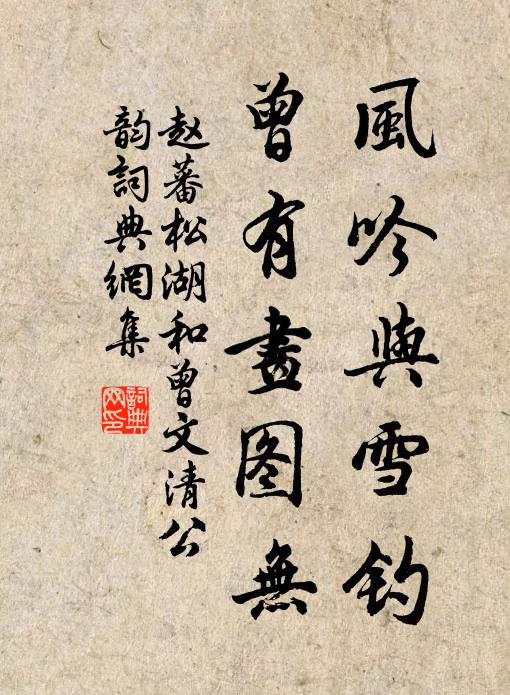 風吟與雪釣
曾有畫图無
赵蕃松湖和曾文清公
韵詞典網集
詞典网印